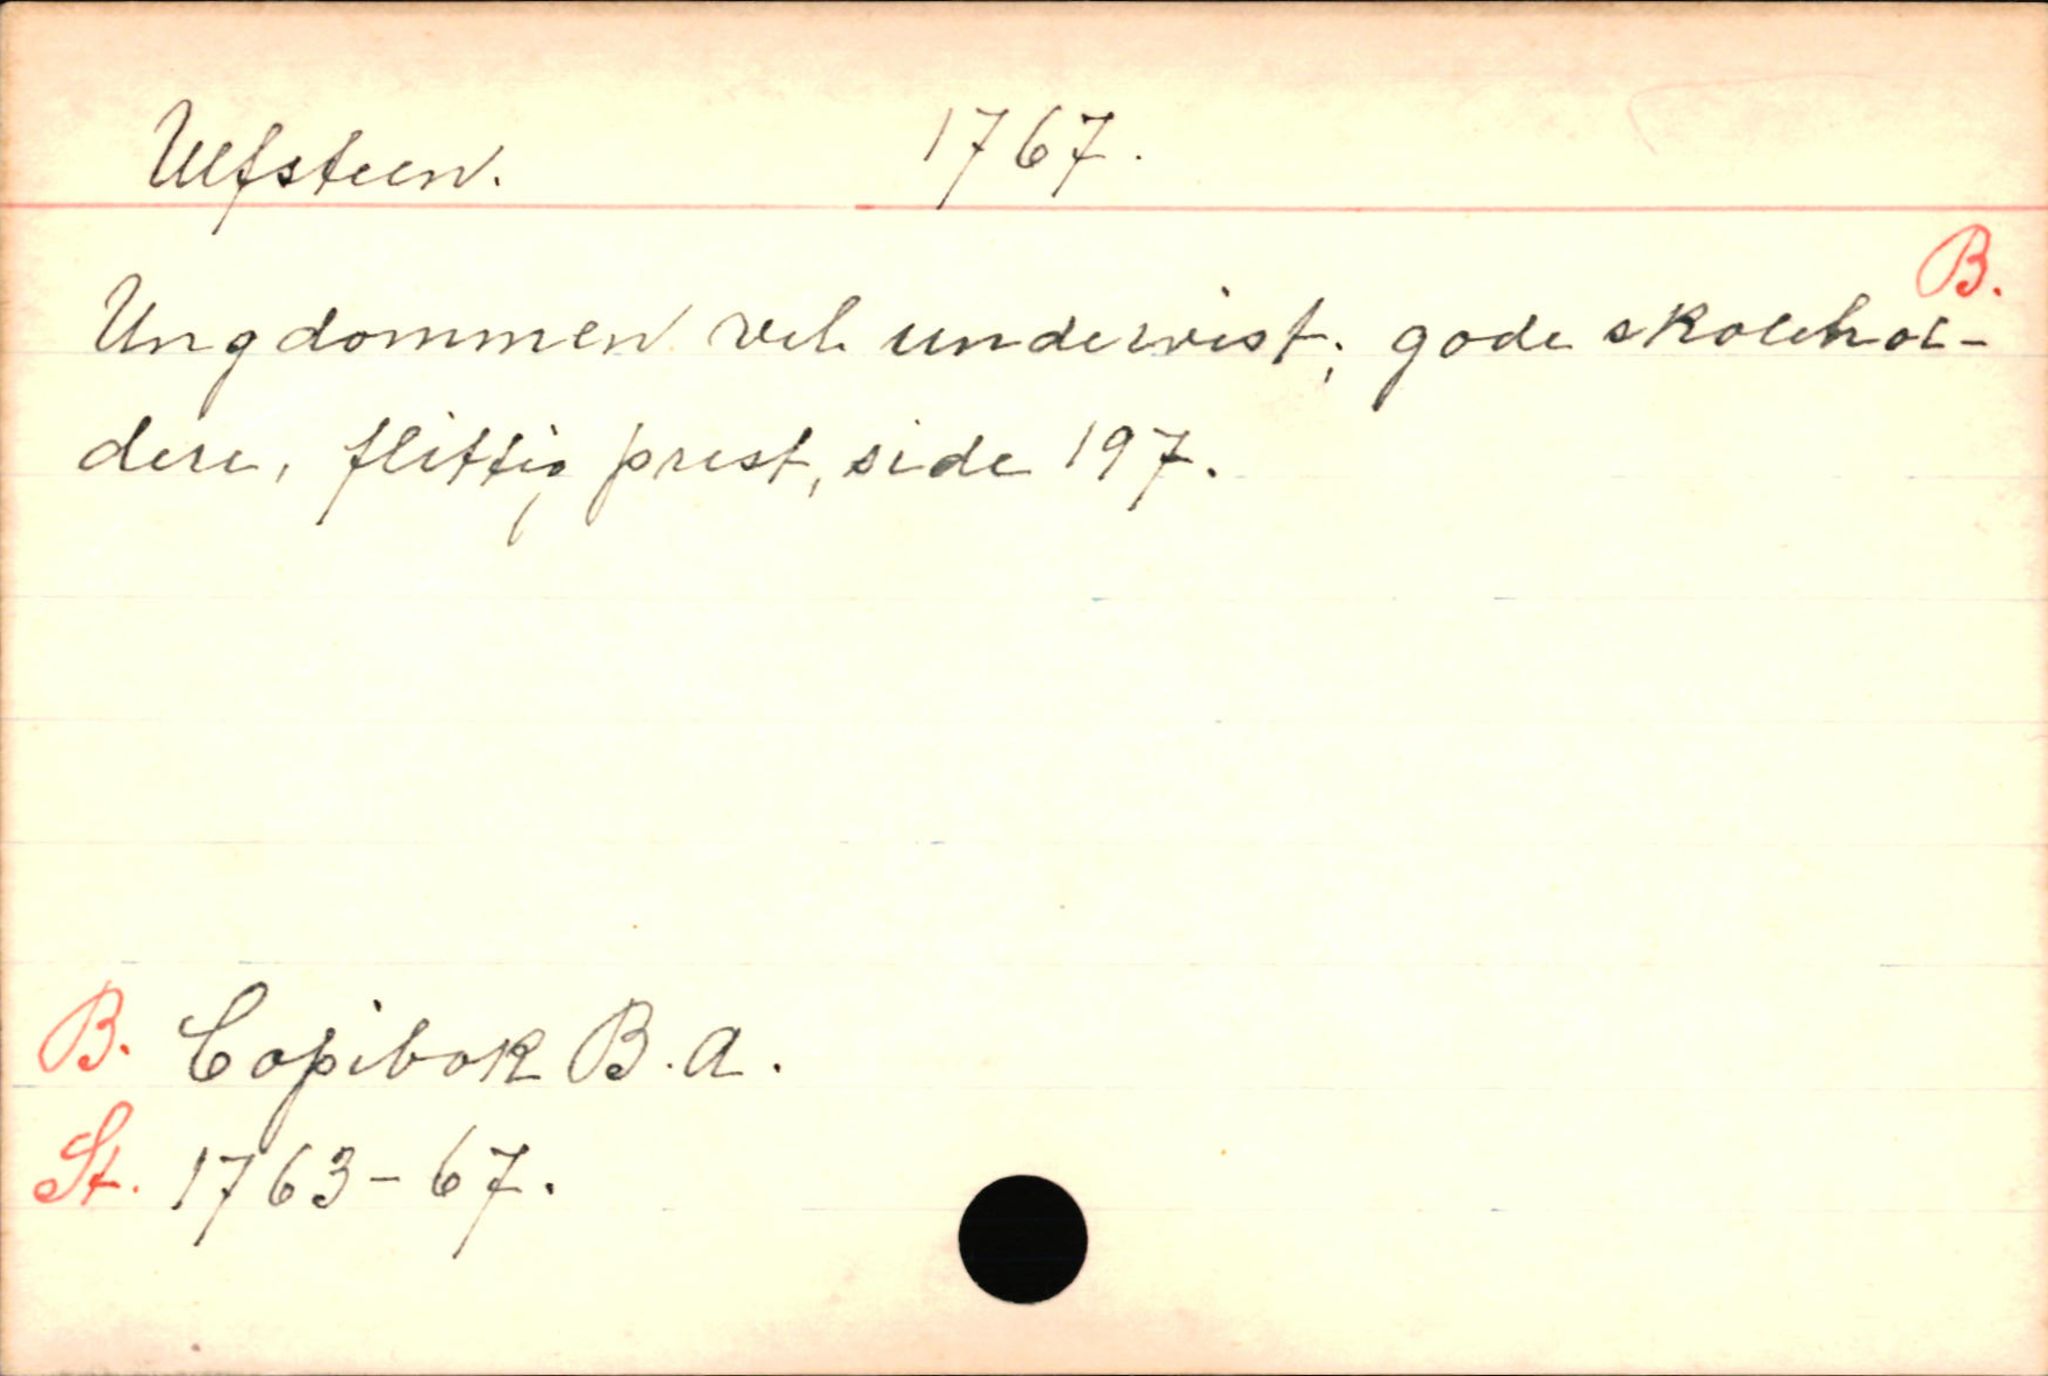 Ulfsteen. 1767.
B.
Ungdommen vel undervist; gode skolehol-
dere, flittig prest, side 197.
B. Copibok B.A.
St. 1763-67.